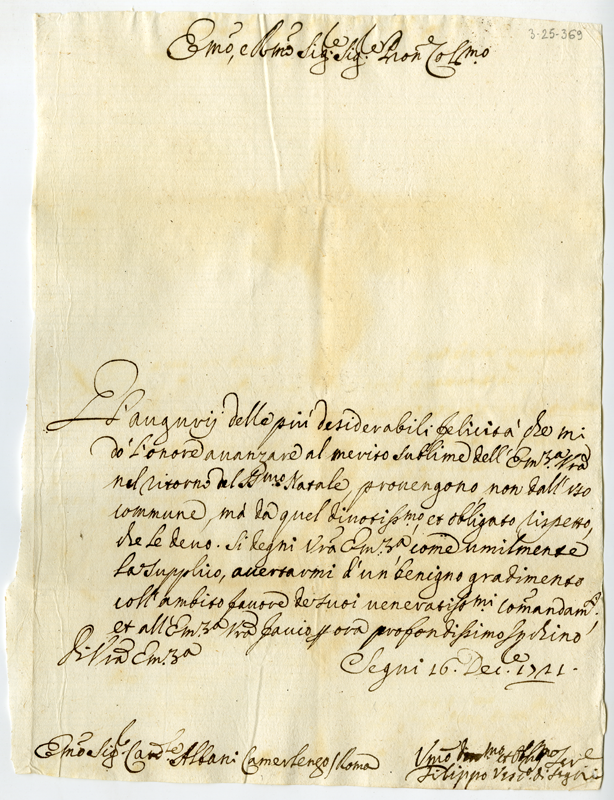 3-25-369
Emo, e Rmo Sig.e Sig.e Pron.e Col.mo
Gl'augurij delle più desiderabili felicità che mi
dò l'onore avanzare al merito sublime dell'Em.za Vrã
nel ritorno del S.mo Natale, provengono non dall'uso
commune, mà da quel divotiss.mo, et obligato rispetto,
che le devo. Si degni Vrã Em.za come umilmente
la supplico, accertarmi d'un benigno gradimento
coll'ambito favore de suoi veneratiss.mi comandam.ti
et all'Em.za Vrã faccio p ora profondissimo inchino
Di Vrã Em.za
Segni 16. Dec.e 1721.
Emo Sig.e Card.le Albani Camerlengo / Roma
Umo et Obl.mo Ser.e
Filippo Vesc.o di Segni